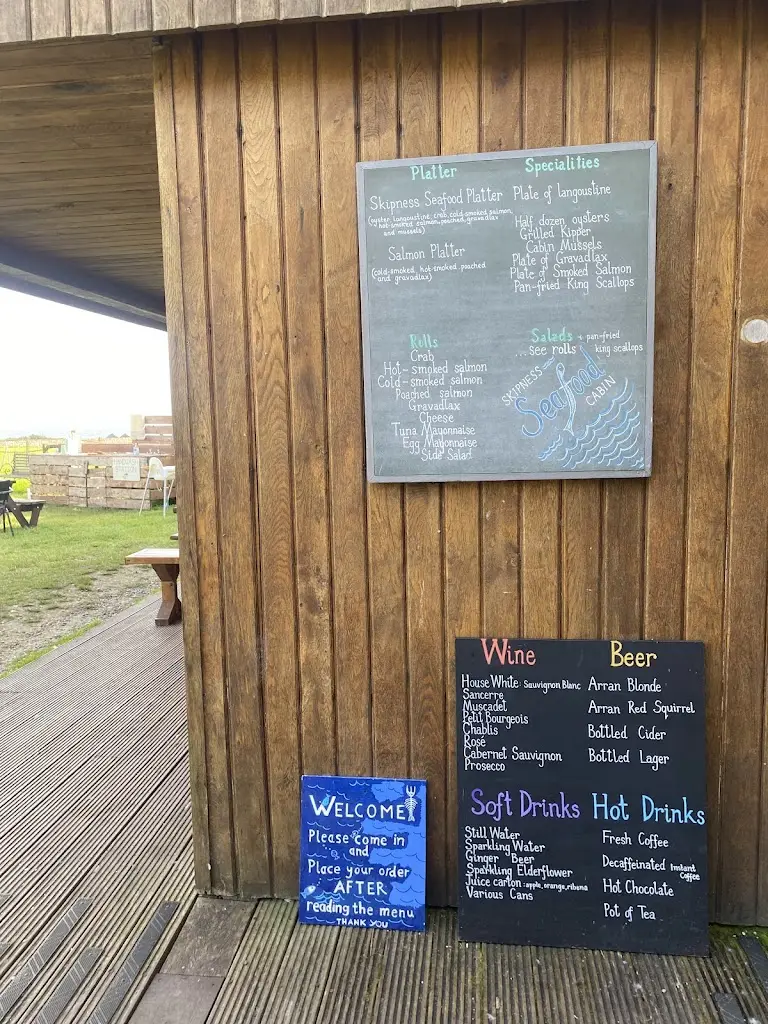 Platter
Skipness Seafood Platter
(oyster, langoustine, crab, cold-smoked salmon,
hot-smoked salmon, poached, gravadlax
and mussels)
Salmon Platter
(cold-smoked, hot-smoked, poached
and gravadlax)
Specialities
Plate of langoustine
Half dozen oysters
Grilled Kipper
Cabin Mussels
Plate of Gravadlax
Plate of Smoked Salmon
Pan-fried King Scallops
Rolls
Crab
Hot-smoked salmon
Cold-smoked salmon
Poached salmon
Gravadlax
Cheese
Tuna Mayonnaise
Egg Mayonnaise
Side Salad
Salads + pan-fried
...see rolls king scallops
SKIPNESS
Seafood
CABIN
Wine
House White: Sauvignon Blanc
Sancerre
Muscadet
Petit Bourgeois
Chablis
Rosé
Cabernet Sauvignon
Prosecco
Beer
Arran Blonde
Arran Red Squirrel
Bottled Cider
Bottled Lager
Soft Drinks
Still Water
Sparkling Water
Ginger Beer
Sparkling Elderflower
Juice carton: apple, orange, ribena
Various Cans
Hot Drinks
Fresh Coffee
Decaffeinated Instant
Coffee
Hot Chocolate
Pot of Tea
WELCOME
Please come in
and
Place your order
AFTER
reading the menu
THANK YOU